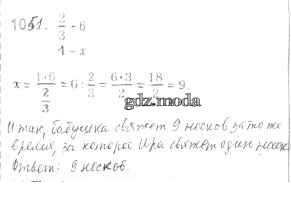 1051. 2/3 - 6
1 - x
x = (1·6)/(2/3) = 6 : 2/3 = (6·3)/2 = 18/2 = 9.
gdz.moda
Итак, бабушка свяжет 9 носков за то же
время, за которое Ира свяжет один
Ответ: 9 носков.